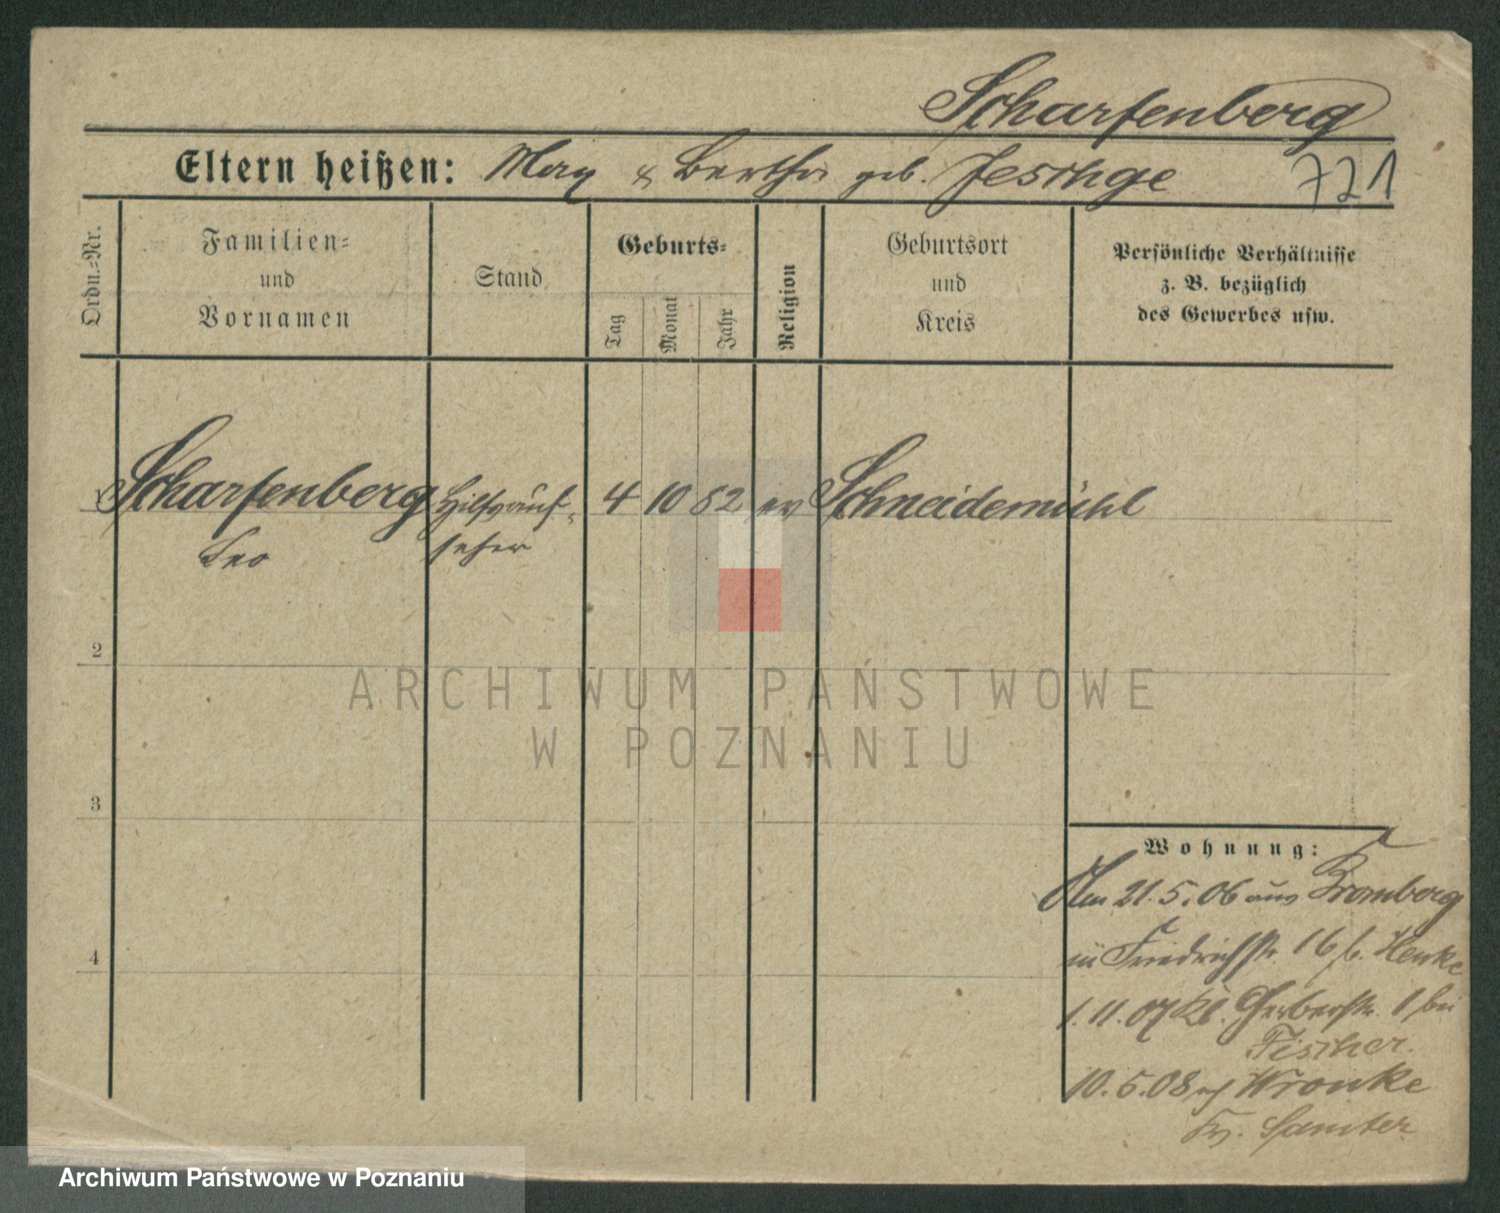 Scharfenberg
Eltern heißen: Max & Bertha geb. Jeschge 721
Ordn.-Nr.
Familien-
und
Vornamen
Stand
Geburts-
Tag
Monat
Jahr
Religion
Geburtsort
und
Kreis
Persönliche Verhältnisse
z. B. bezüglich
des Gewerbes usw.
1 Scharfenberg Hilfsauf- 4 10 82 ev Schneidemühl
Leo seher
2
3
4
Wohnung:
Am 21.5.06 aus Bromberg
in Friedrichstr. 16 b. Henke
1.11.07 Kl. Gerberstr. 1 bei
Fischer.
10.5.08 n/ Wronke
Kr. Samter
ARCHIWUM PAŃSTWOWE
W POZNANIU
Archiwum Państwowe w Poznaniu